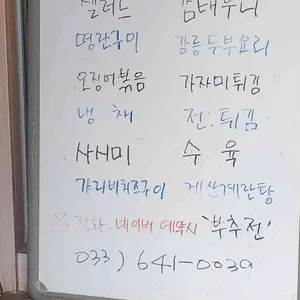 샐러드 감태주먹
명란구이 강릉두부요리
오징어볶음 가자미튀김
냉채 전.튀김
사시미 수육
가리비치즈구이 게살계란탕
※ 전화. 네이버 예약시 '부추전'
033) 641-0039